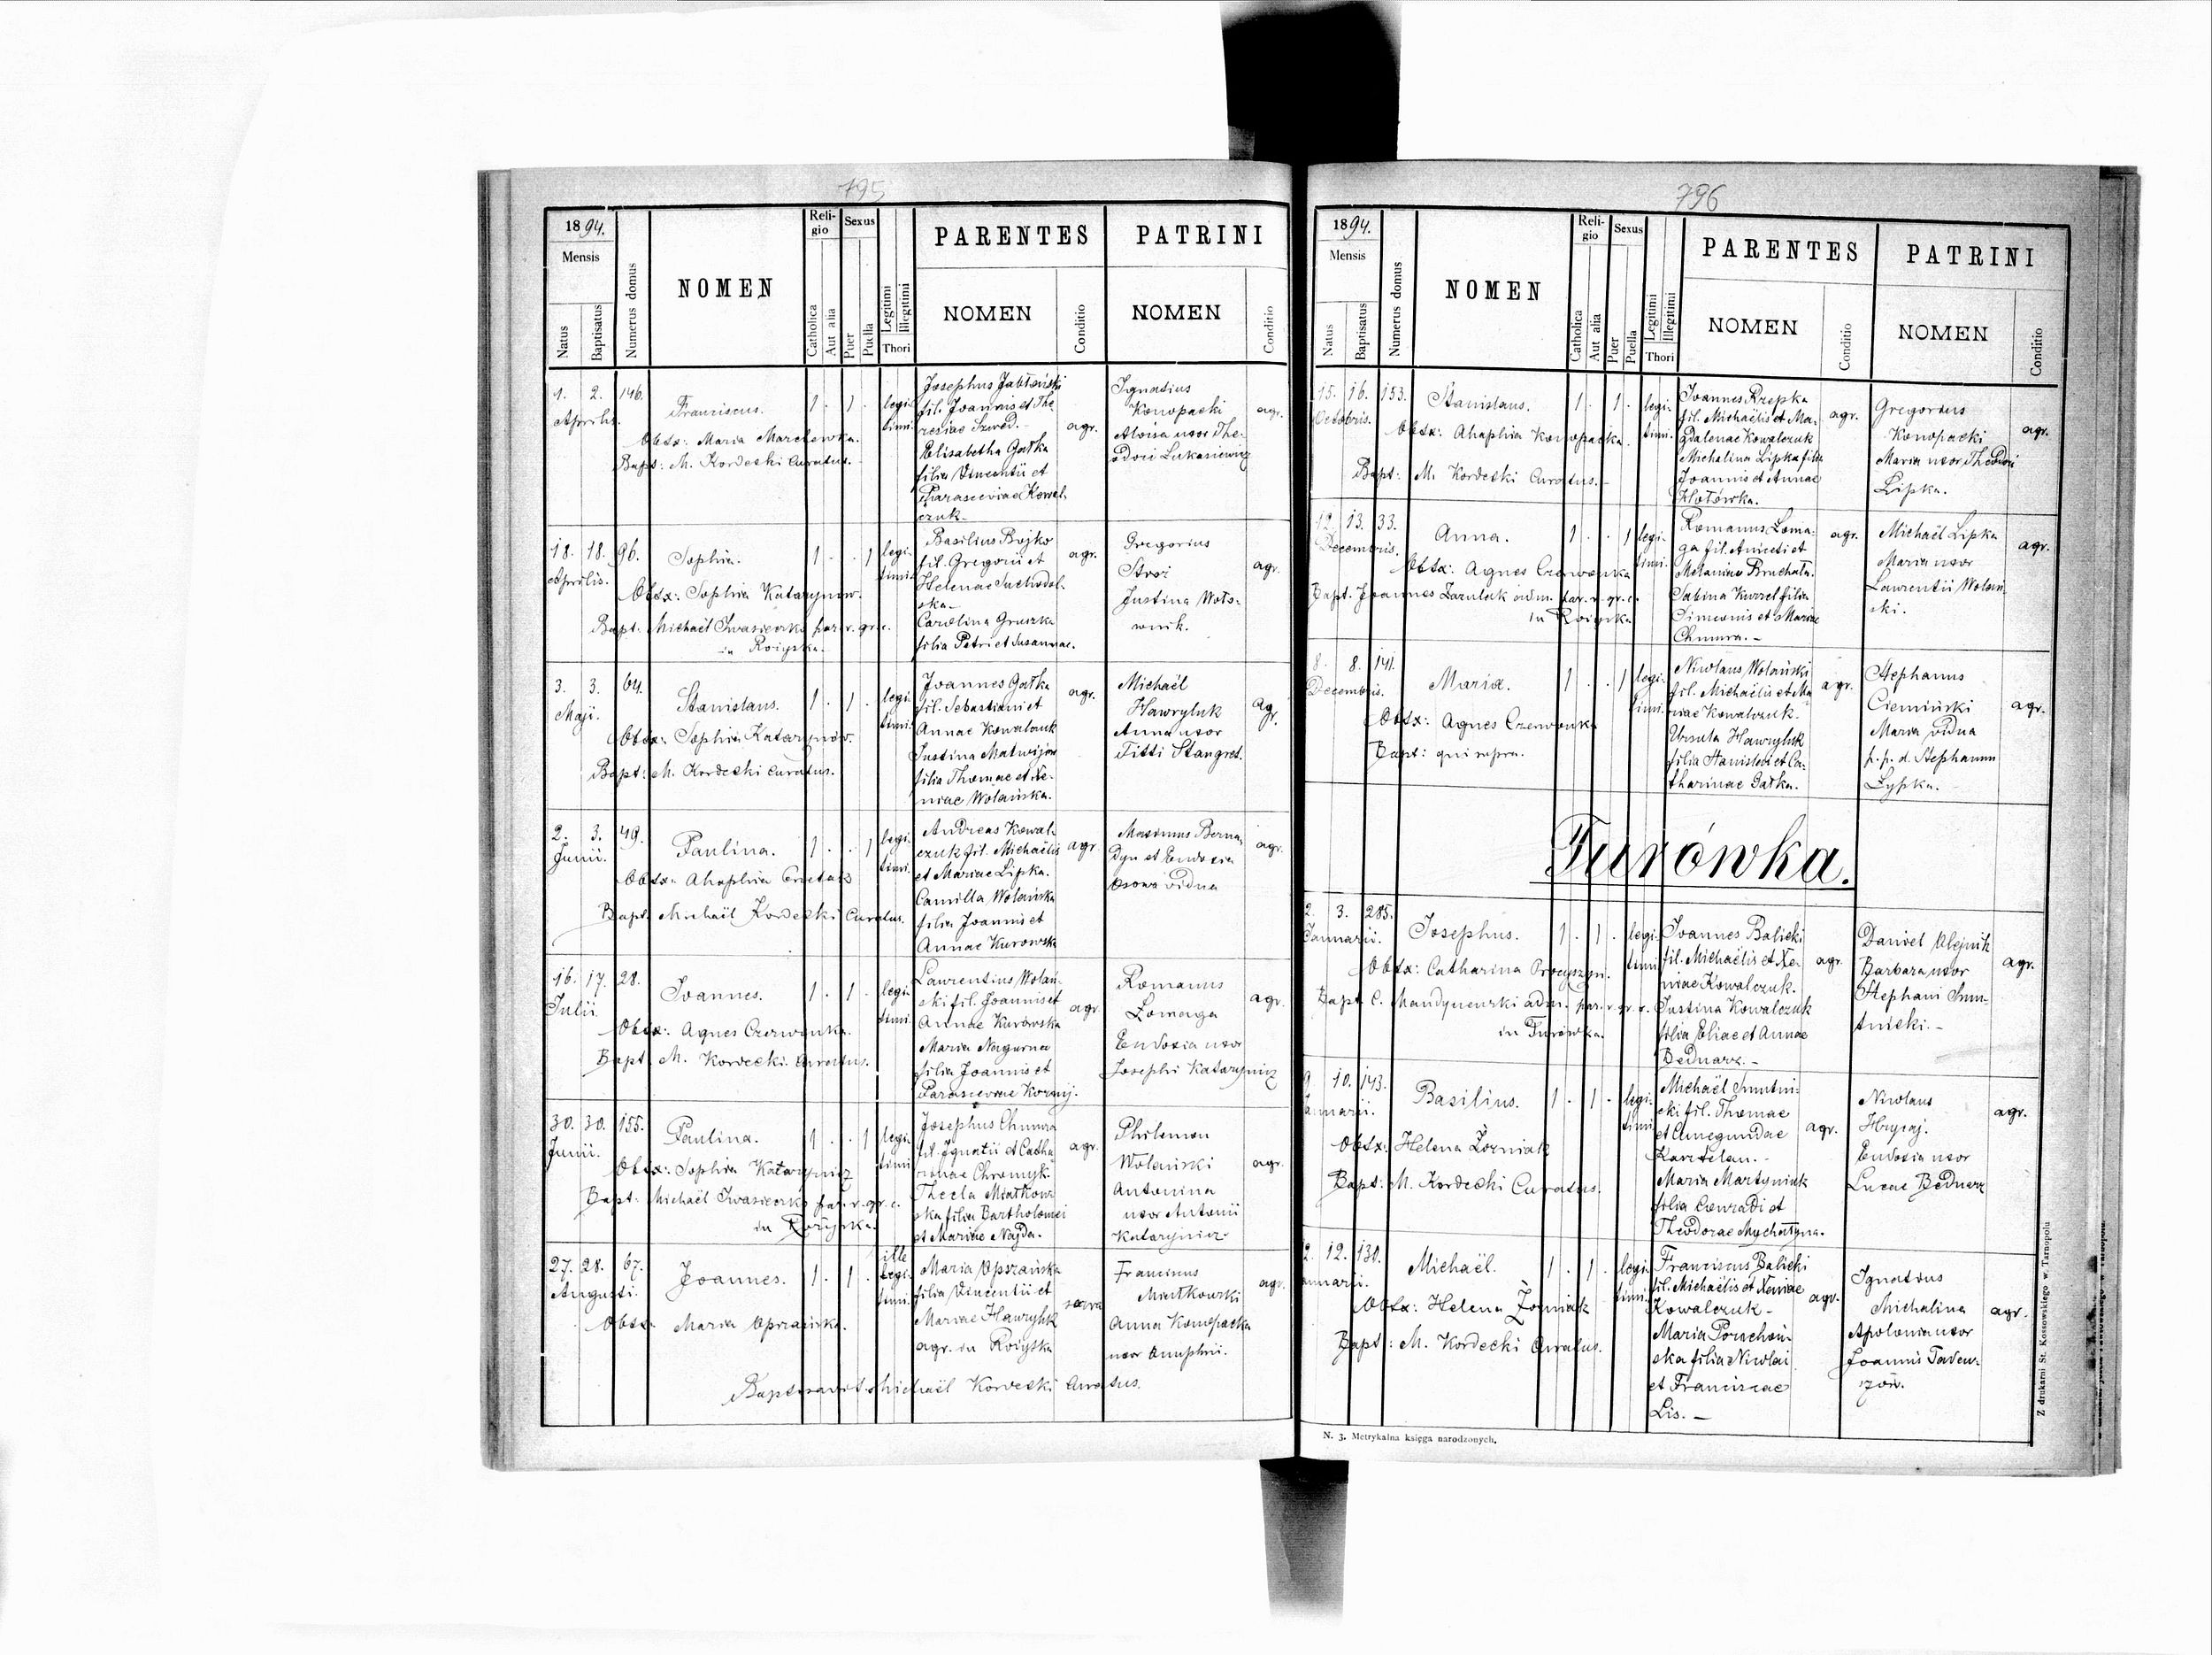 795
1894.
Mensis
Natus
Baptisatus
Numerus domus
NOMEN
Religio
Catholica
Aut alia
Sexus
Puer
Puella
Legitimi
Illegitimi
Thori
PARENTES
NOMEN
Conditio
PATRINI
NOMEN
Conditio
1. 2. 146.
Aprilis.
Franciscus.
1 . 1 .
legi-
timi.
Obstx: Maria Marchewka.
Bapt: M. Kordecki Curatus.
Josephus Jabłoński
fil. Joannis et The-
resiae Szwed.
Elisabetha Gałka
filia Vincentii et
Parasceviae Kowal-
czuk.
agr.
Ignatius
Konopacki
Aloisa uxor The-
odori Lukasiewicz
agr.
18. 18. 96.
Aprilis.
Sophia.
1 . . 1
legi-
timi.
Obstx: Sophia Katarynicz.
Bapt: Michaël Iwasieczko par. r. gr. c.
in Rożyska.
Basilius Bojko
fil. Gregorii et
Helenae Suchodol-
ska
Carolina Gruszka
filia Petri et Susannae.
agr.
Gregorius
Stroi
Justina Woło-
wnik.
agr.
3. 3. 64.
Maji.
Stanislaus.
1 . 1 .
legi-
timi.
Obstx: Sophia Katarynicz.
Bapt: M. Kordecki Curatus.
Joannes Gałka
fil. Sebastiani et
Annae Kowalczuk
Justina Matwijów
filia Thomae et Xe-
niae Wolańska.
agr.
Michaël
Hawryluk
Anna uxor
Titti Stangret.
agr.
2. 3. 49.
Junii.
Paulina.
1 . . 1
legi-
timi.
Obstx: Ahaphia
Bapt. Michaël Kordecki Curatus.
Andreas Kowal-
czuk fil. Michaëlis
et Mariae Lipka.
Camilla Wolańska
filia Joannis et
Annae Kurowska
agr.
Maximus Berna-
dyn et Eudoxia
vidua
agr.
16. 17. 28.
Julii.
Joannes.
1 . 1 .
legi-
timi.
Obstx: Agnes Czerwonka.
Bapt. M. Kordecki. Curatus.
Laurentius Wolań-
ski fil. Joannis et
Annae Kurowska
Maria Nagurna
filia Joannis et
Parasceviae Kornij.
agr.
Romanus
Łomaga
Eudoxia uxor
Josephi Katarynicz
agr.
30. 30. 155.
Junii.
Paulina.
1 . . 1
legi-
timi.
Obstx: Sophia Katarynicz
Bapt: Michaël Iwasieczko par. r. gr. c.
in Rożyska.
Josephus Chmura
fil. Ignatii et Catha-
rinae Chromyk.
Thecla Miatkow-
ska filia Bartholomei
et Mariae Najda.
agr.
Philemon
Wolański
Antonina
uxor Antonii
Katarynicz
agr.
27. 28. 67.
Augusti.
Joannes.
1 . 1 .
ille
legi-
timi.
Obstx. Maria Oprzańska.
Maria Oprzańska
filia Vincentii et
Mariae Hawryluk
agr. in Rożyska
Franciscus
Miatkowski
Anna Konopacka
uxor Onuphrii.
agr.
Baptisavit Michaël Kordecki Curatus.
796
1894.
Mensis
Natus
Baptisatus
Numerus domus
NOMEN
Religio
Catholica
Aut alia
Sexus
Puer
Puella
Legitimi
Illegitimi
Thori
PARENTES
NOMEN
Conditio
PATRINI
NOMEN
Conditio
15. 16. 153.
Octobris.
Stanislaus.
1 . 1 .
legi-
timi.
Obstx: Ahaphia Konopacka.
Bapt: M. Kordecki Curatus.
Joannes Rzepka
fil. Michaëlis et Ma-
gdalenae Kowalczuk
Michalina Lipka filia
Joannis et Annae
Złotówka.
agr.
Gregorius
Konopacki
Maria uxor Theodori
Lipka.
agr.
12. 13. 33.
Decembris.
Anna.
1 . . 1
legi-
timi.
Obstx: Agnes Czerwonka
Bapt. Joannes Zarulak adm. par. r. gr. c.
in Rożyska
Romanus Łoma-
ga fil. Aniceti et
Melaniae Bruchata.
Sabina Kurzel filia
Simeonis et Mariae
Chmura.
agr.
Michaël Lipka
Maria uxor
Laurentii Wolań-
ski.
agr.
8. 8. 141.
Decembris.
Maria.
1 . . 1
legi-
timi.
Obstx: Agnes Czerwonka
Bapt: qui supra.
Nicolaus Wolański
fil. Michaëlis et Ma-
riae Kowalczuk.
Ursula Hawryluk
filia Stanislai et Ca-
tharinae Gałka.
agr.
Stephanus
Ciemiński
Maria vidua
p. p. d. Stephanum
Lypka.
agr.
Turówka.
2. 3. 285.
Januarii.
Josephus.
1 . 1 .
legi-
timi.
Obstx: Catharina
Bapt. C. Mandyczewski adm. par. r. gr. c.
in Turówka.
Joannes Balicki
fil. Michaëlis et Xe-
niae Kowalczuk.
Justina Kowalczuk
filia Eliae et Annae
Bednarz.
agr.
Daniel Olejnik
Barbara uxor
Stephani Smu-
tnicki.
agr.
9. 10. 143.
Januarii.
Basilius.
1 . 1 .
legi-
timi.
Obstx: Helena Zorniak
Bapt: M. Kordecki Curatus.
Michaël Smutni-
cki fil. Thomae
et Cunegundae
Kasztelan.
Maria Martyniuk
filia Conradi et
Theodorae Mychałyna.
agr.
Nicolaus
Hrycaj.
Eudoxia uxor
Lucae Bednarz
agr.
12. 12. 130.
Januarii.
Michaël.
1 . 1 .
legi-
timi.
Obstx: Helena Zorniak
Bapt: M. Kordecki Curatus.
Franciscus Balicki
fil. Michaëlis et Xeniae
Kowalczuk
Maria Poracheń-
ska filia Nicolai
et Franciscae
Lis.
agr.
Ignatius
Michalina
Apolonia uxor
Joannis
agr.
N. 3. Metrykalna księga narodzonych.
Z drukarni St. Kossowskiego w Tarnopolu